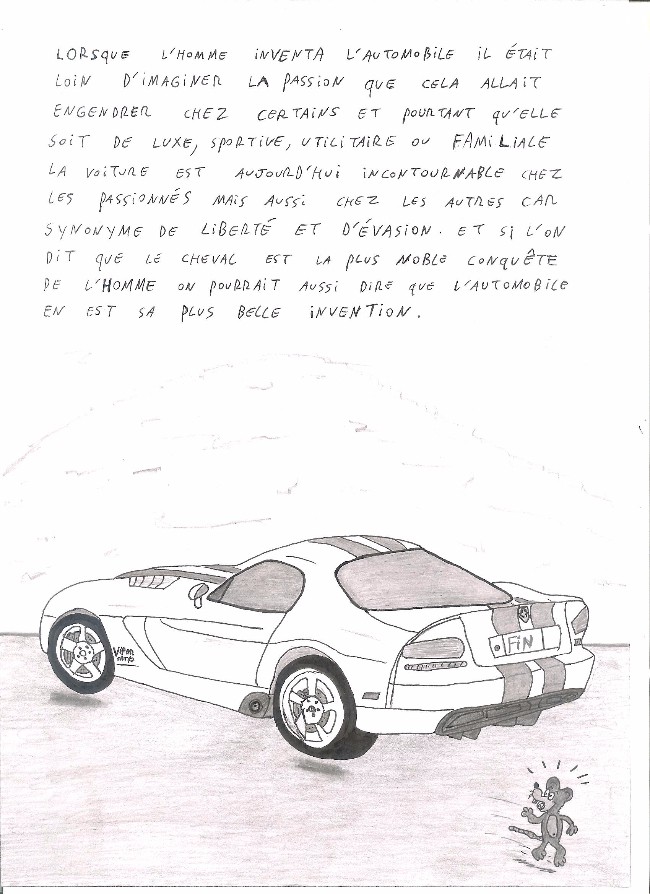 LORSQUE L'HOMME INVENTA L'AUTOMOBILE IL ÉTAIT
LOIN D'IMAGINER LA PASSION QUE CELA ALLAIT
ENGENDRER CHEZ CERTAINS ET POURTANT QU'ELLE
SOIT DE LUXE, SPORTIVE, UTILITAIRE OU FAMILIALE
LA VOITURE EST AUJOURD'HUI INCONTOURNABLE CHEZ
LES PASSIONNÉS MAIS AUSSI CHEZ LES AUTRES CAR
SYNONYME DE LIBERTÉ ET D'ÉVASION. ET SI L'ON
DIT QUE LE CHEVAL EST LA PLUS NOBLE CONQUÊTE
DE L'HOMME ON POURRAIT AUSSI DIRE QUE L'AUTOMOBILE
EN EST SA PLUS BELLE INVENTION.
FIN